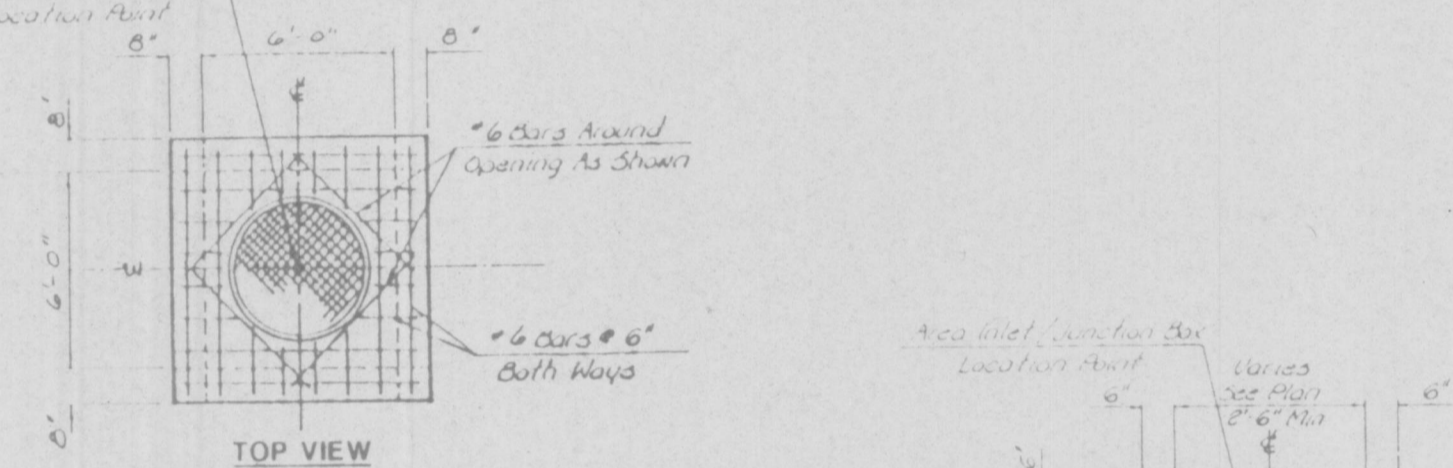 Location Point
8" 6'-0" 8"
℄
8"
#6 Bars Around
Opening As Shown
6'-0"
℄
#6 Bars @ 6"
Both Ways
8"
TOP VIEW
Area Inlet/Junction Box
Location Point
Varies
See Plan
2'-6" Min
6" 6"
℄